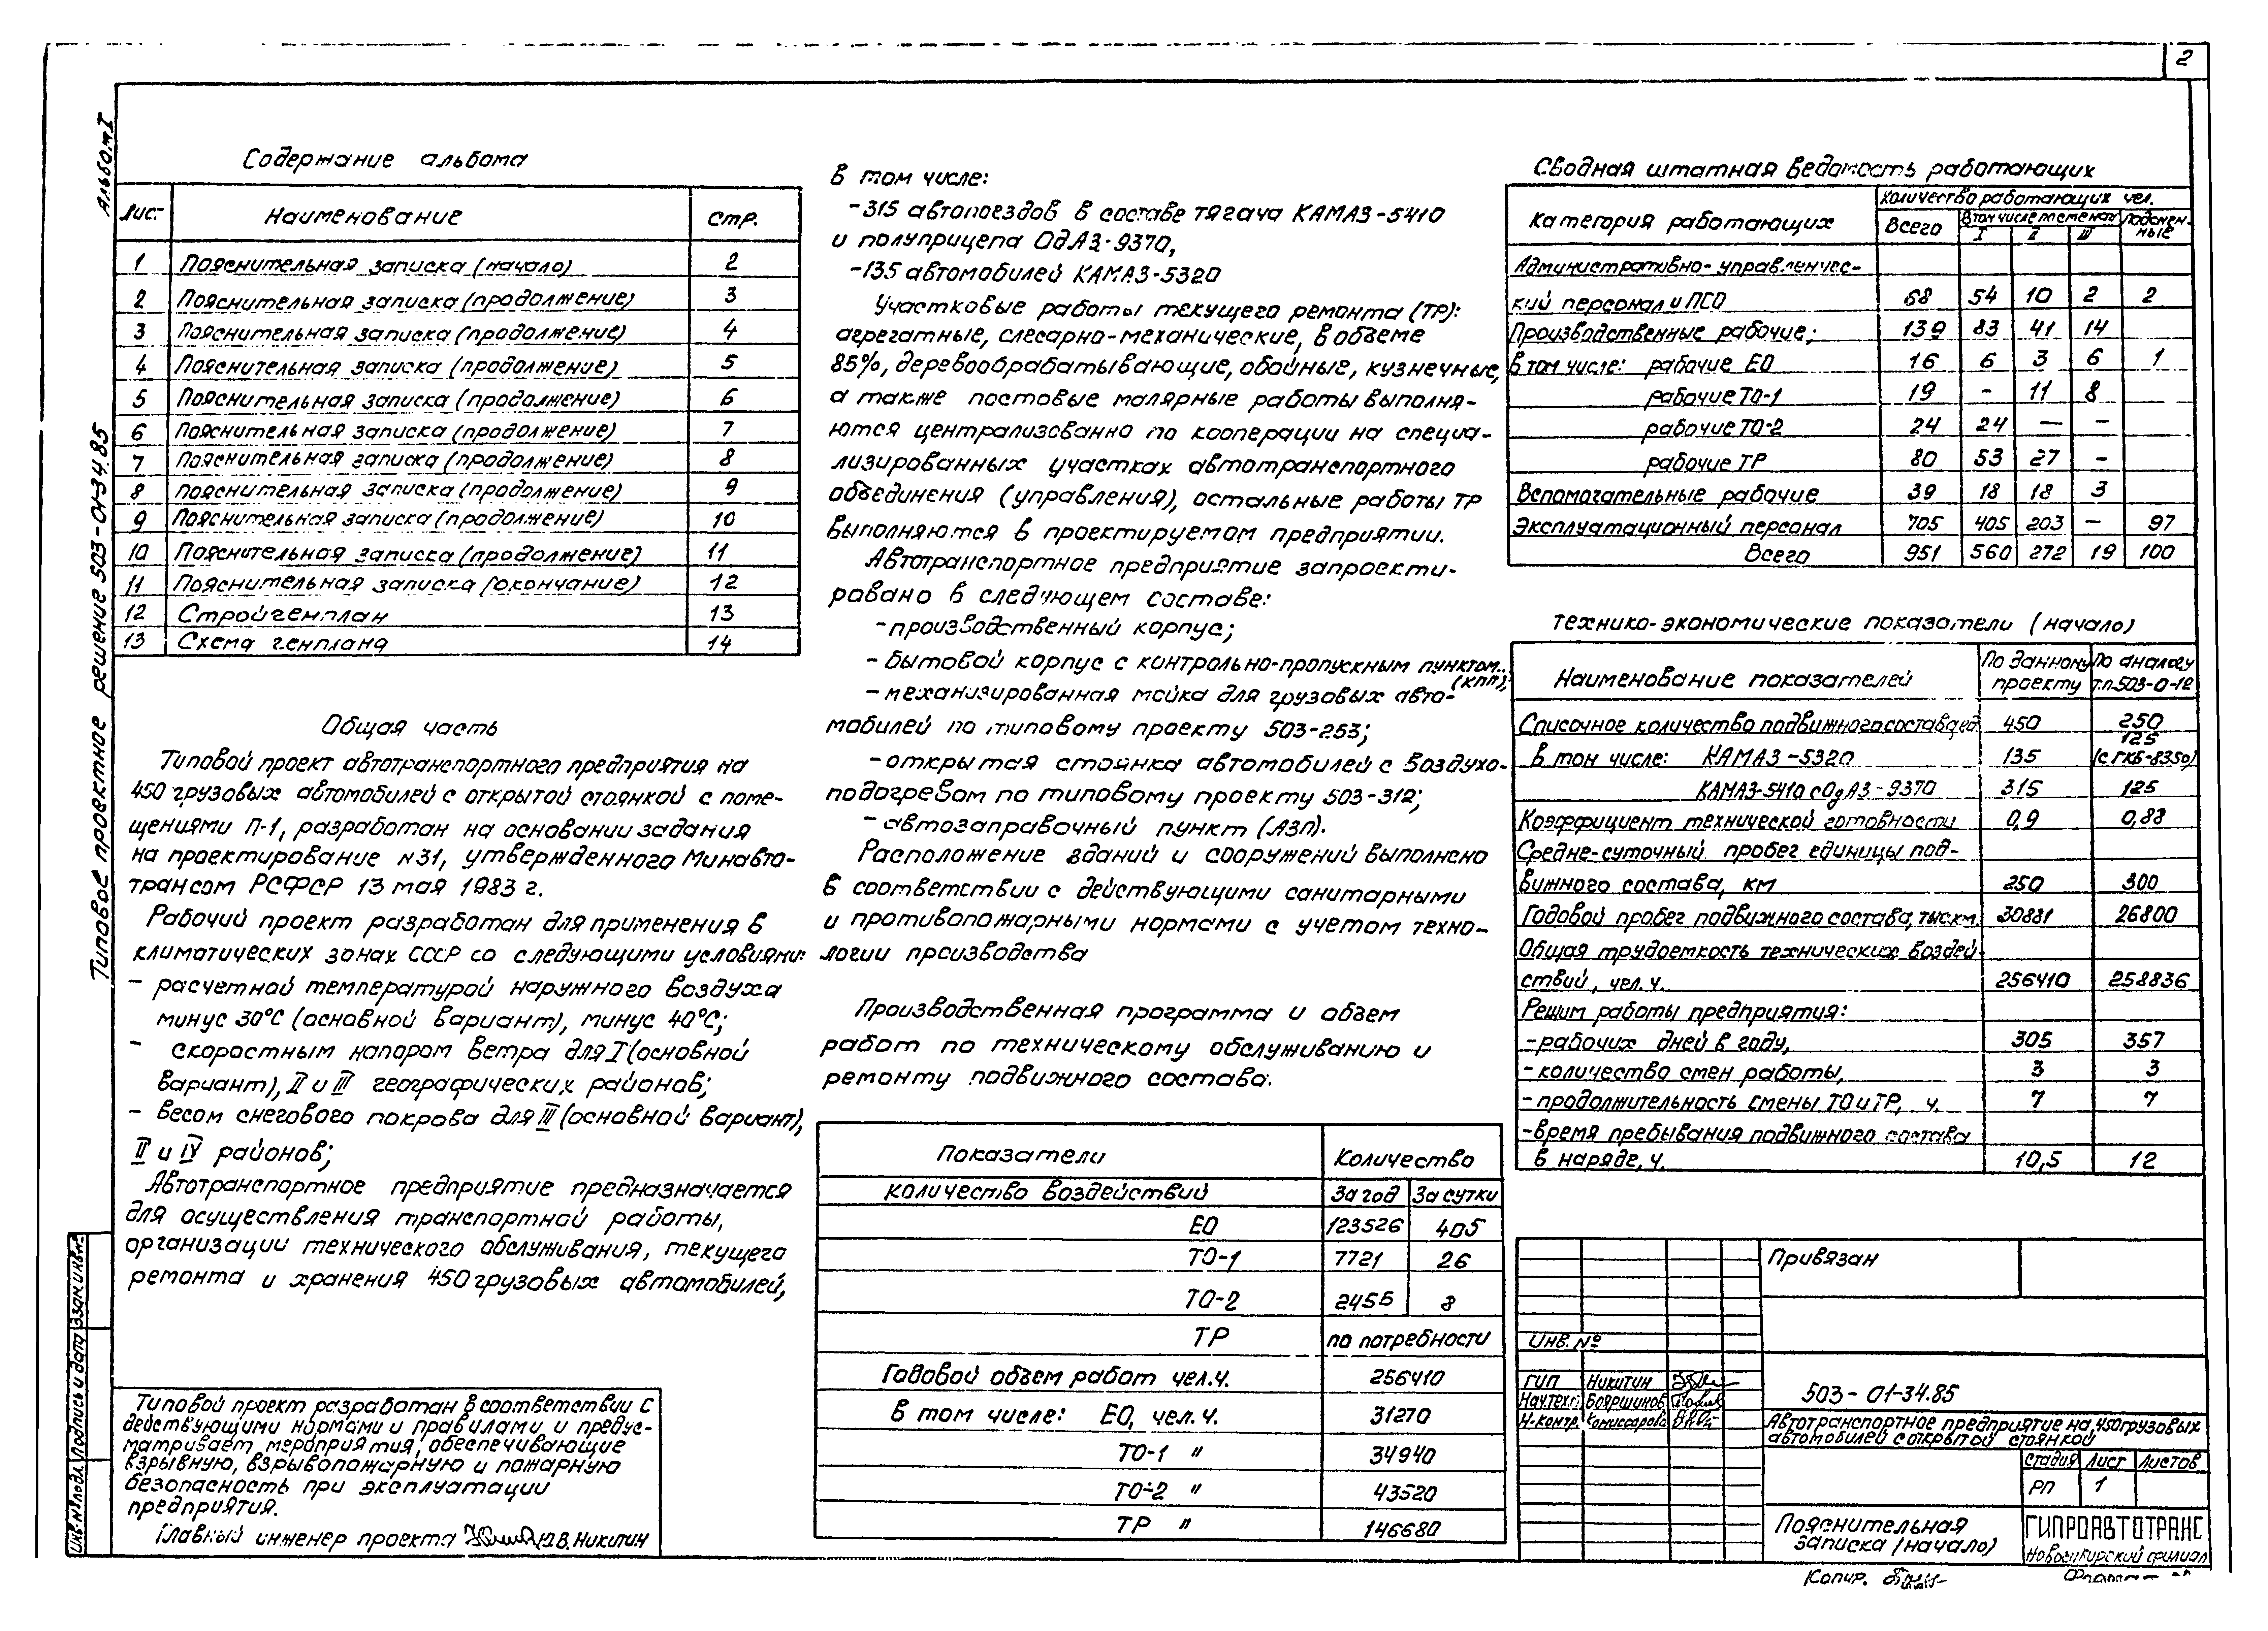 2
Альбом I
Типовое проектное решение 503-01-34.85
Содержание альбома
Лис- Наименование стр.
1 Пояснительная записка (начало) 2
2 Пояснительная записка (продолжение) 3
3 Пояснительная записка (продолжение) 4
4 Пояснительная записка (продолжение) 5
5 Пояснительная записка (продолжение) 6
6 Пояснительная записка (продолжение) 7
7 Пояснительная записка (продолжение) 8
8 Пояснительная записка (продолжение) 9
9 Пояснительная записка (продолжение) 10
10 Пояснительная записка (продолжение) 11
11 Пояснительная записка (окончание) 12
12 Стройгенплан 13
13 Схема генплана 14
Общая часть
Типовой проект автотранспортного предприятия на
450 грузовых автомобилей с открытой стоянкой с поме-
щениями П-1, разработан на основании задания
на проектирование №31, утвержденного Минавто-
трансом РСФСР 13 мая 1983 г.
Рабочий проект разработан для применения в
климатических зонах СССР со следующими условиями:
- расчетной температурой наружного воздуха
минус 30°С (основной вариант), минус 40°С;
- скоростным напором ветра для I (основной
вариант), II и III географических районов;
- весом снегового покрова для III (основной вариант),
II и IV районов;
Автотранспортное предприятие предназначается
для осуществления транспортной работы,
организации технического обслуживания, текущего
ремонта и хранения 450 грузовых автомобилей,
Типовой проект разработан в соответствии с
действующими нормами и правилами и предус-
матривает мероприятия, обеспечивающие
взрывную, взрывопожарную и пожарную
безопасность при эксплуатации
предприятия.
Главный инженер проекта Ю.В. Никитин
Инв.№ подл. Подпись и дата Взам.инв.№
в том числе:
-315 автопоездов в составе тягача КАМАЗ-5410
и полуприцепа ОдАЗ-9370,
-135 автомобилей КАМАЗ-5320
Участковые работы текущего ремонта (ТР):
агрегатные, слесарно-механические, в объеме
85%, деревообрабатывающие, обойные, кузнечные,
а также постовые малярные работы выполня-
ются централизованно по кооперации на специа-
лизированных участках автотранспортного
объединения (управления), остальные работы ТР
выполняются в проектируемом предприятии.
Автотранспортное предприятие запроекти-
ровано в следующем составе:
-производственный корпус;
-бытовой корпус с контрольно-пропускным пунктом
(КПП);
-механизированная мойка для грузовых авто-
мобилей по типовому проекту 503-253;
-открытая стоянка автомобилей с воздухо-
подогревом по типовому проекту 503-312;
-автозаправочный пункт (АЗП).
Расположение зданий и сооружений выполнено
в соответствии с действующими санитарными
и противопожарными нормами с учетом техно-
логии производства
Производственная программа и объем
работ по техническому обслуживанию и
ремонту подвижного состава.
Показатели Количество
Количество воздействий За год За сутки
ЕО 123526 405
ТО-1 7721 26
ТО-2 2455 8
ТР по потребности
Годовой объем работ чел.ч. 256410
в том числе: ЕО, чел.ч. 31270
ТО-1 " 34940
ТО-2 " 43520
ТР " 146680
Сводная штатная ведомость работающих
Категория работающих Количество работающих чел.
Всего В том числе по сменам Подмен-
I II III ные
Административно-управленчес-
кий персонал и ПСО 68 54 10 2 2
Производственные рабочие; 139 83 41 14
В том числе: рабочие ЕО 16 6 3 6 1
рабочие ТО-1 19 - 11 8
рабочие ТО-2 24 24 — -
рабочие ТР 80 53 27 -
Вспомогательные рабочие 39 18 18 3
Эксплуатационный персонал 705 405 203 — 97
Всего 951 560 272 19 100
Технико-экономические показатели (начало)
Наименование показателей По данному проекту По аналогу т.п.503-0-12
Списочное количество подвижного состава, ед. 450 250
в том числе: КАМАЗ-5320 135 125 (с ГКБ-8350)
КАМАЗ-5410 с ОдАЗ-9370 315 125
Коэффициент технической готовности 0,9 0,88
Средне-суточный пробег единицы под-
вижного состава, км 250 300
Годовой пробег подвижного состава, тыс.км. 30881 26800
Общая трудоемкость технических воздей-
ствий, чел.ч. 256410 258836
Режим работы предприятия:
-рабочих дней в году, 305 357
-количество смен работы, 3 3
-продолжительность смены ТО и ТР, ч. 7 7
-время пребывания подвижного состава
в наряде, ч. 10,5 12
Привязан
Инв.№
ГИП Никитин
Нач.тех.о Бояршинов
Н.контр. Комиссарова
503-01-34.85
Автотранспортное предприятие на 450 грузовых
автомобилей с открытой стоянкой
Стадия Лист Листов
РП 1
Пояснительная
записка (начало)
ГИПРОАВТОТРАНС
Новосибирский филиал
Копир.
Формат